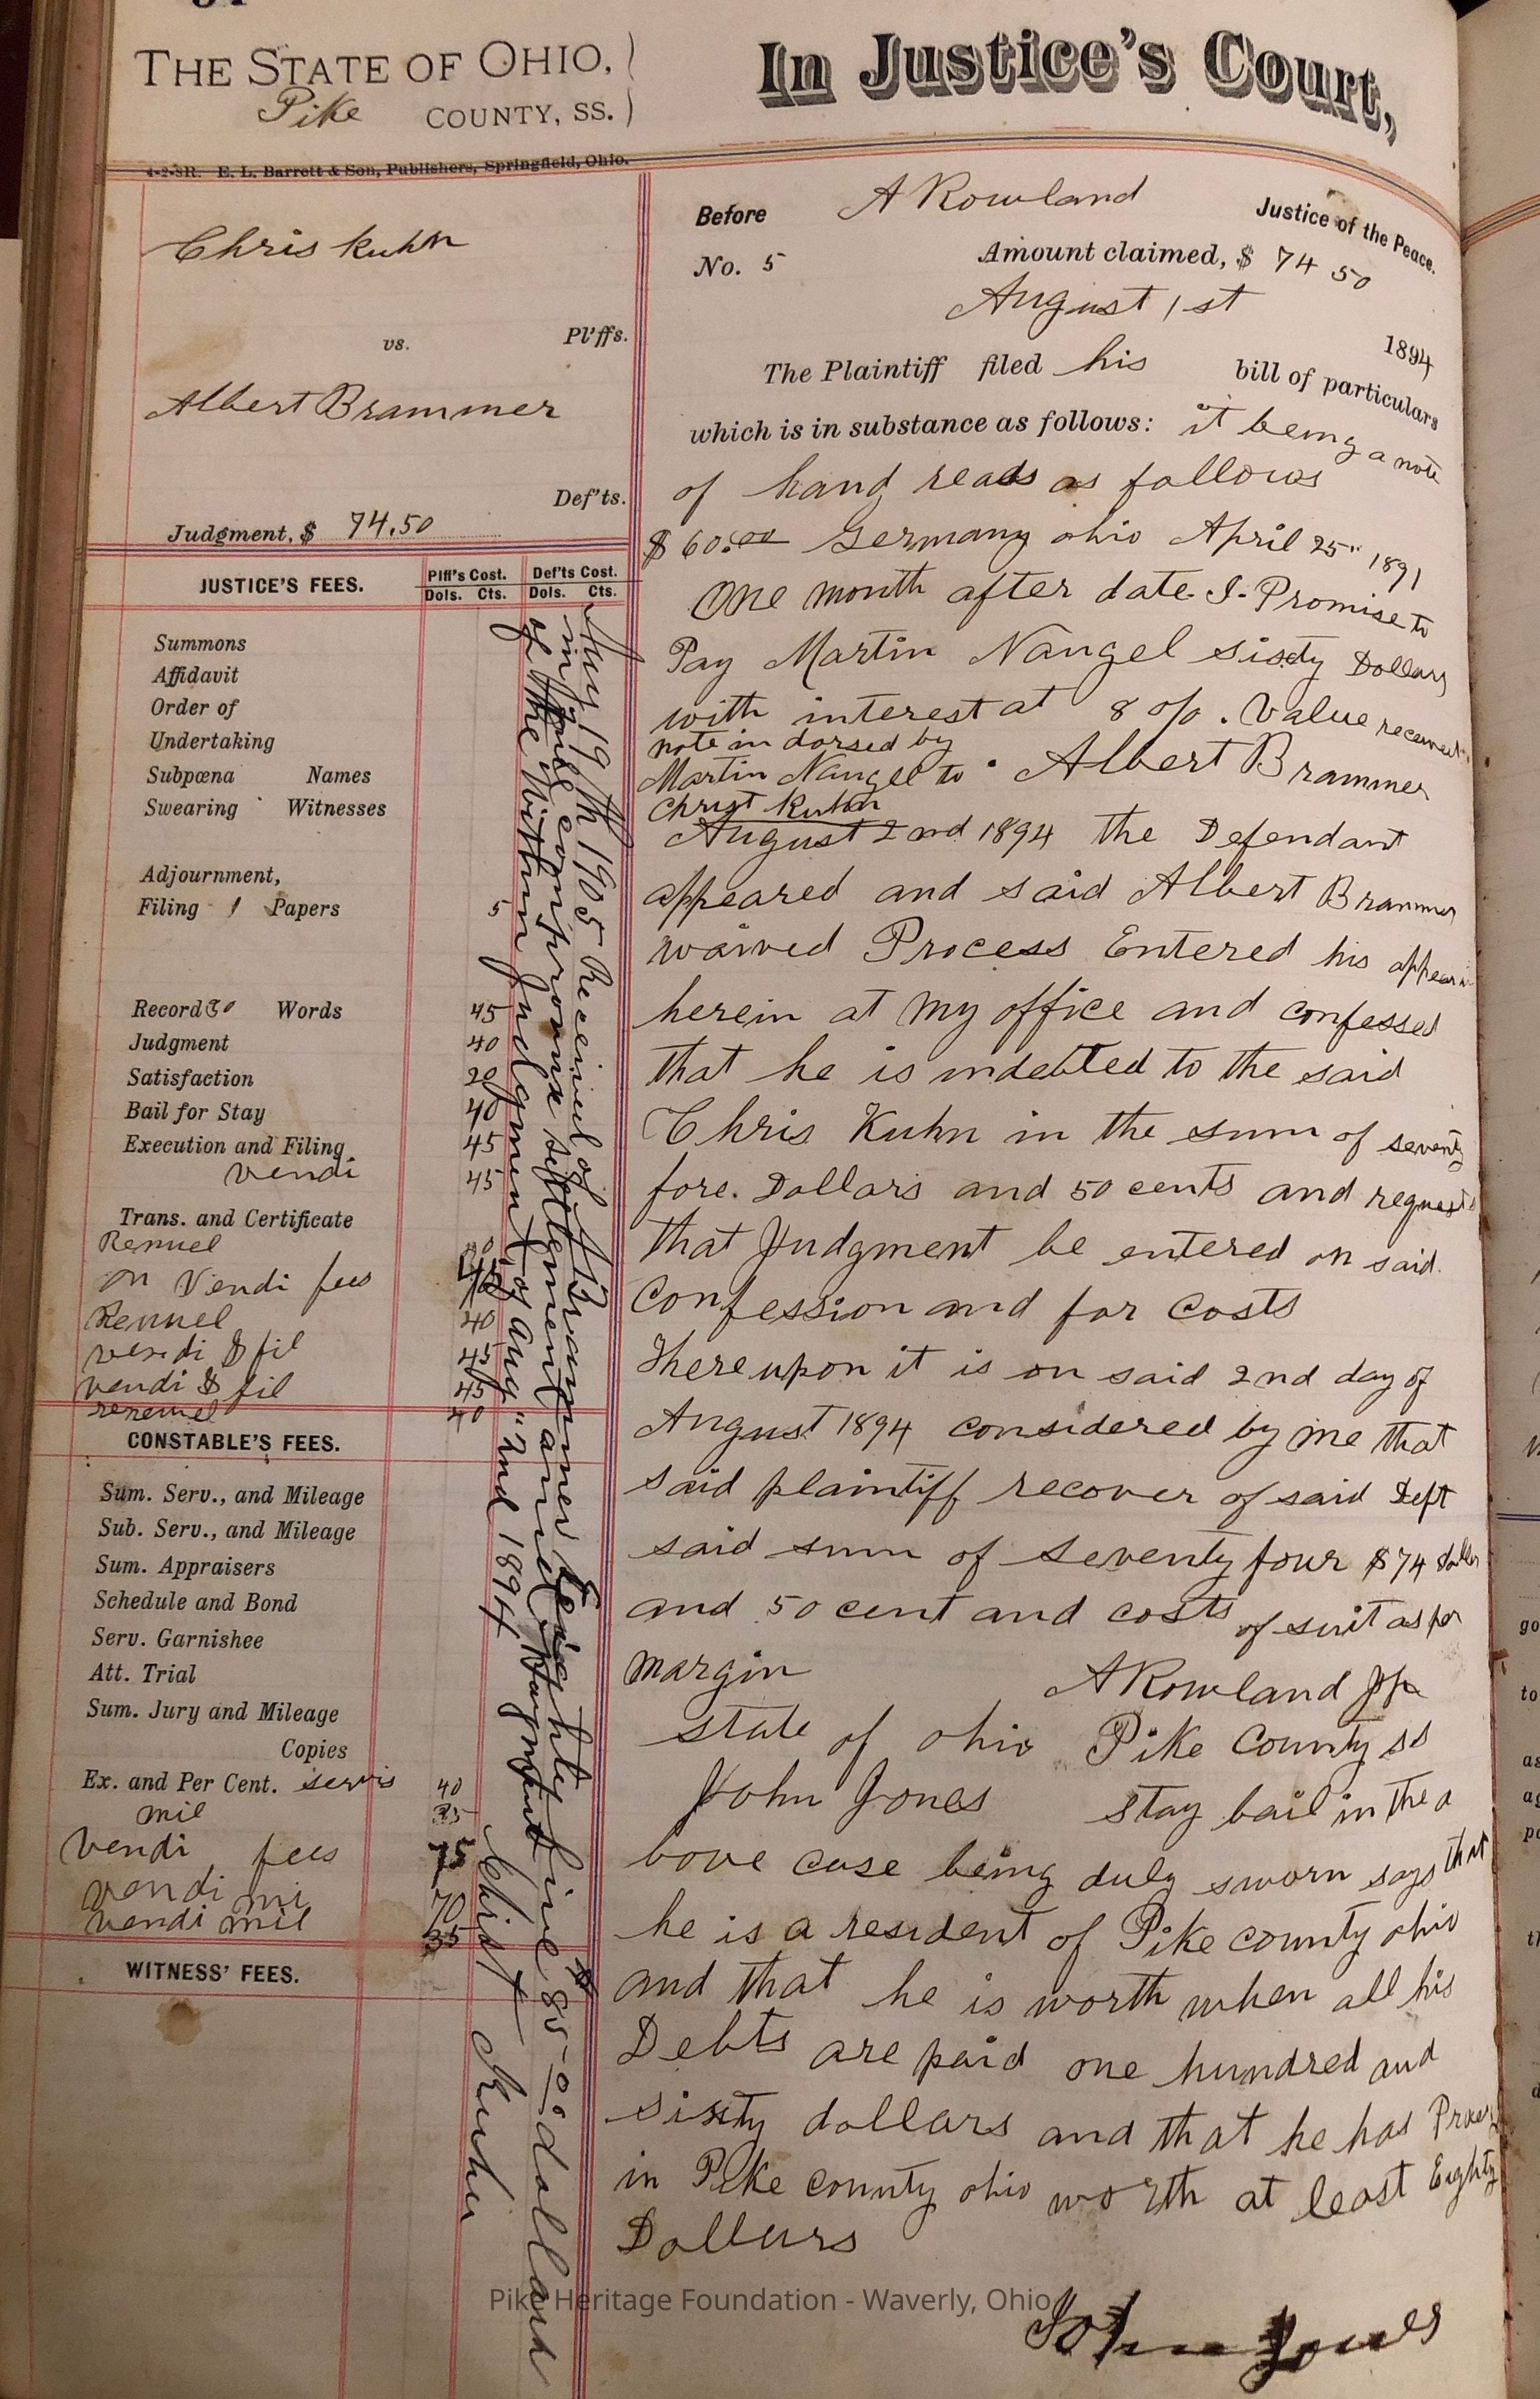 THE STATE OF OHIO,
Pike COUNTY, SS.
4-2-3R. E. L. Barrett & Son, Publishers, Springfield, Ohio.
In Justice's Court,
Chris Kuhn
vs. Pl'ffs.
Albert Brammer
Def'ts.
Judgment, $ 74.50
Before A Rowland Justice of the Peace.
No. 5 Amount claimed, $ 74 50
August 1st 1894
The Plaintiff filed his bill of particulars
which is in substance as follows: it being a note
of hand reads as follows
$ 60.00 Germany ohio April 25" 1891
One month after date I Promise to
Pay Martin Nangel sixty Dollars
with interest at 8 o/o. Value received
note indorsed by
Martin Nangel to Albert Brammer
Christ Kuhn
August 2nd 1894 the Defendant
appeared and said Albert Brammer
waived Process Entered his appear
herein at my office and confessed
that he is indebted to the said
Chris Kuhn in the sum of seventy
fore. Dollars and 50 cents and request
that Judgment be entered on said
Confession and for Costs
There upon it is on said 2nd day of
August 1894 considered by me that
said plaintiff recover of said Deft
said sum of seventy four $74 dollar
and 50 cent and costs of suit as per
margin A Rowland JP
state of ohio Pike County ss
John Jones stay bail in the a
bove case being duly sworn says that
he is a resident of Pike county ohio
and that he is worth when all his
Debts are paid one hundred and
sixty dollars and that he has
in Pike county ohio worth at least Eighty
Dollars
John Jones
JUSTICE'S FEES.
Plff's Cost. Def'ts Cost.
Dols. Cts. Dols. Cts.
Summons
Affidavit
Order of
Undertaking
Subpœna Names
Swearing Witnesses
Adjournment,
Filing 1 Papers 5
Record Words 45
Judgment 40
Satisfaction 20
Bail for Stay 40
Execution and Filing 45
vendi 45
Trans. and Certificate
Renuel
on Vendi fees
Renuel 40
vendi & fil 45
vendi & fil 45
renewel 40
CONSTABLE'S FEES.
Sum. Serv., and Mileage
Sub. Serv., and Mileage
Sum. Appraisers
Schedule and Bond
Serv. Garnishee
Att. Trial
Sum. Jury and Mileage
Copies
Ex. and Per Cent. servis 40
mil 35
Vendi fees 75
vendi mi 70
vendi mil 35
WITNESS' FEES.
July 19th 1905 Received of A Brammer Eighty five $85-00 dollars
in full compromise settlement and
of the within Judgment of Aug "2nd 1894
Christ Kuhn
Pike Heritage Foundation - Waverly, Ohio